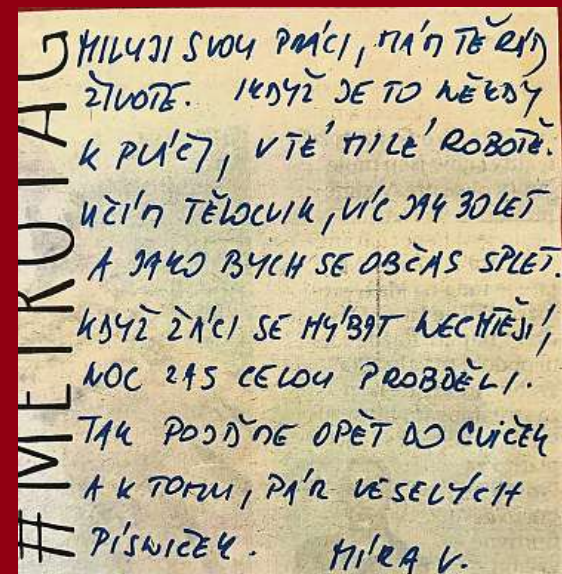 #METROTAG
MILUJI SVOU PRÁCI, MÁM TĚ RÁD
ŽIVOTE. IKDYŽ JE TO NĚKDY
K PLÁČI, V TÉ MILÉ ROBOTĚ.
UČÍM TĚLOCVIK, VÍC JAK 30 LET
A JAKO BYCH SE OBČAS SPLET.
KDYŽ ŽÁCI SE HÝBAT NECHTĚJÍ,
NOC ZAS CELOU PROBDĚLI.
TAK POJĎME OPĚT DO CVIČEK
A K TOMU, PÁR VESELÝCH
PÍSNIČEK. MÍRA V.